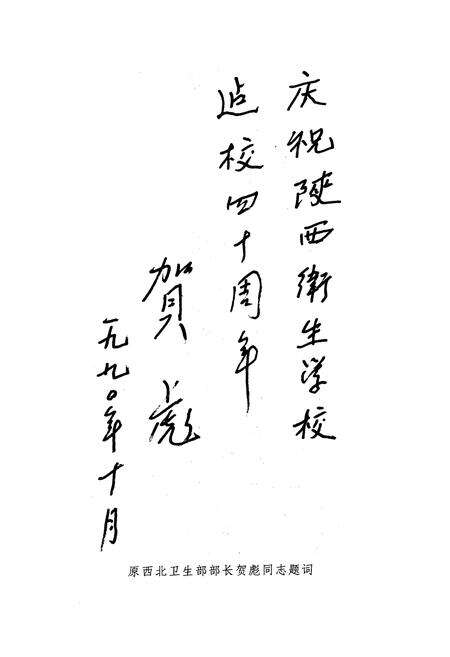 庆祝陕西衛生学校
造校四十周年
賀彪
一九九〇年十月
原西北卫生部部长贺彪同志题词